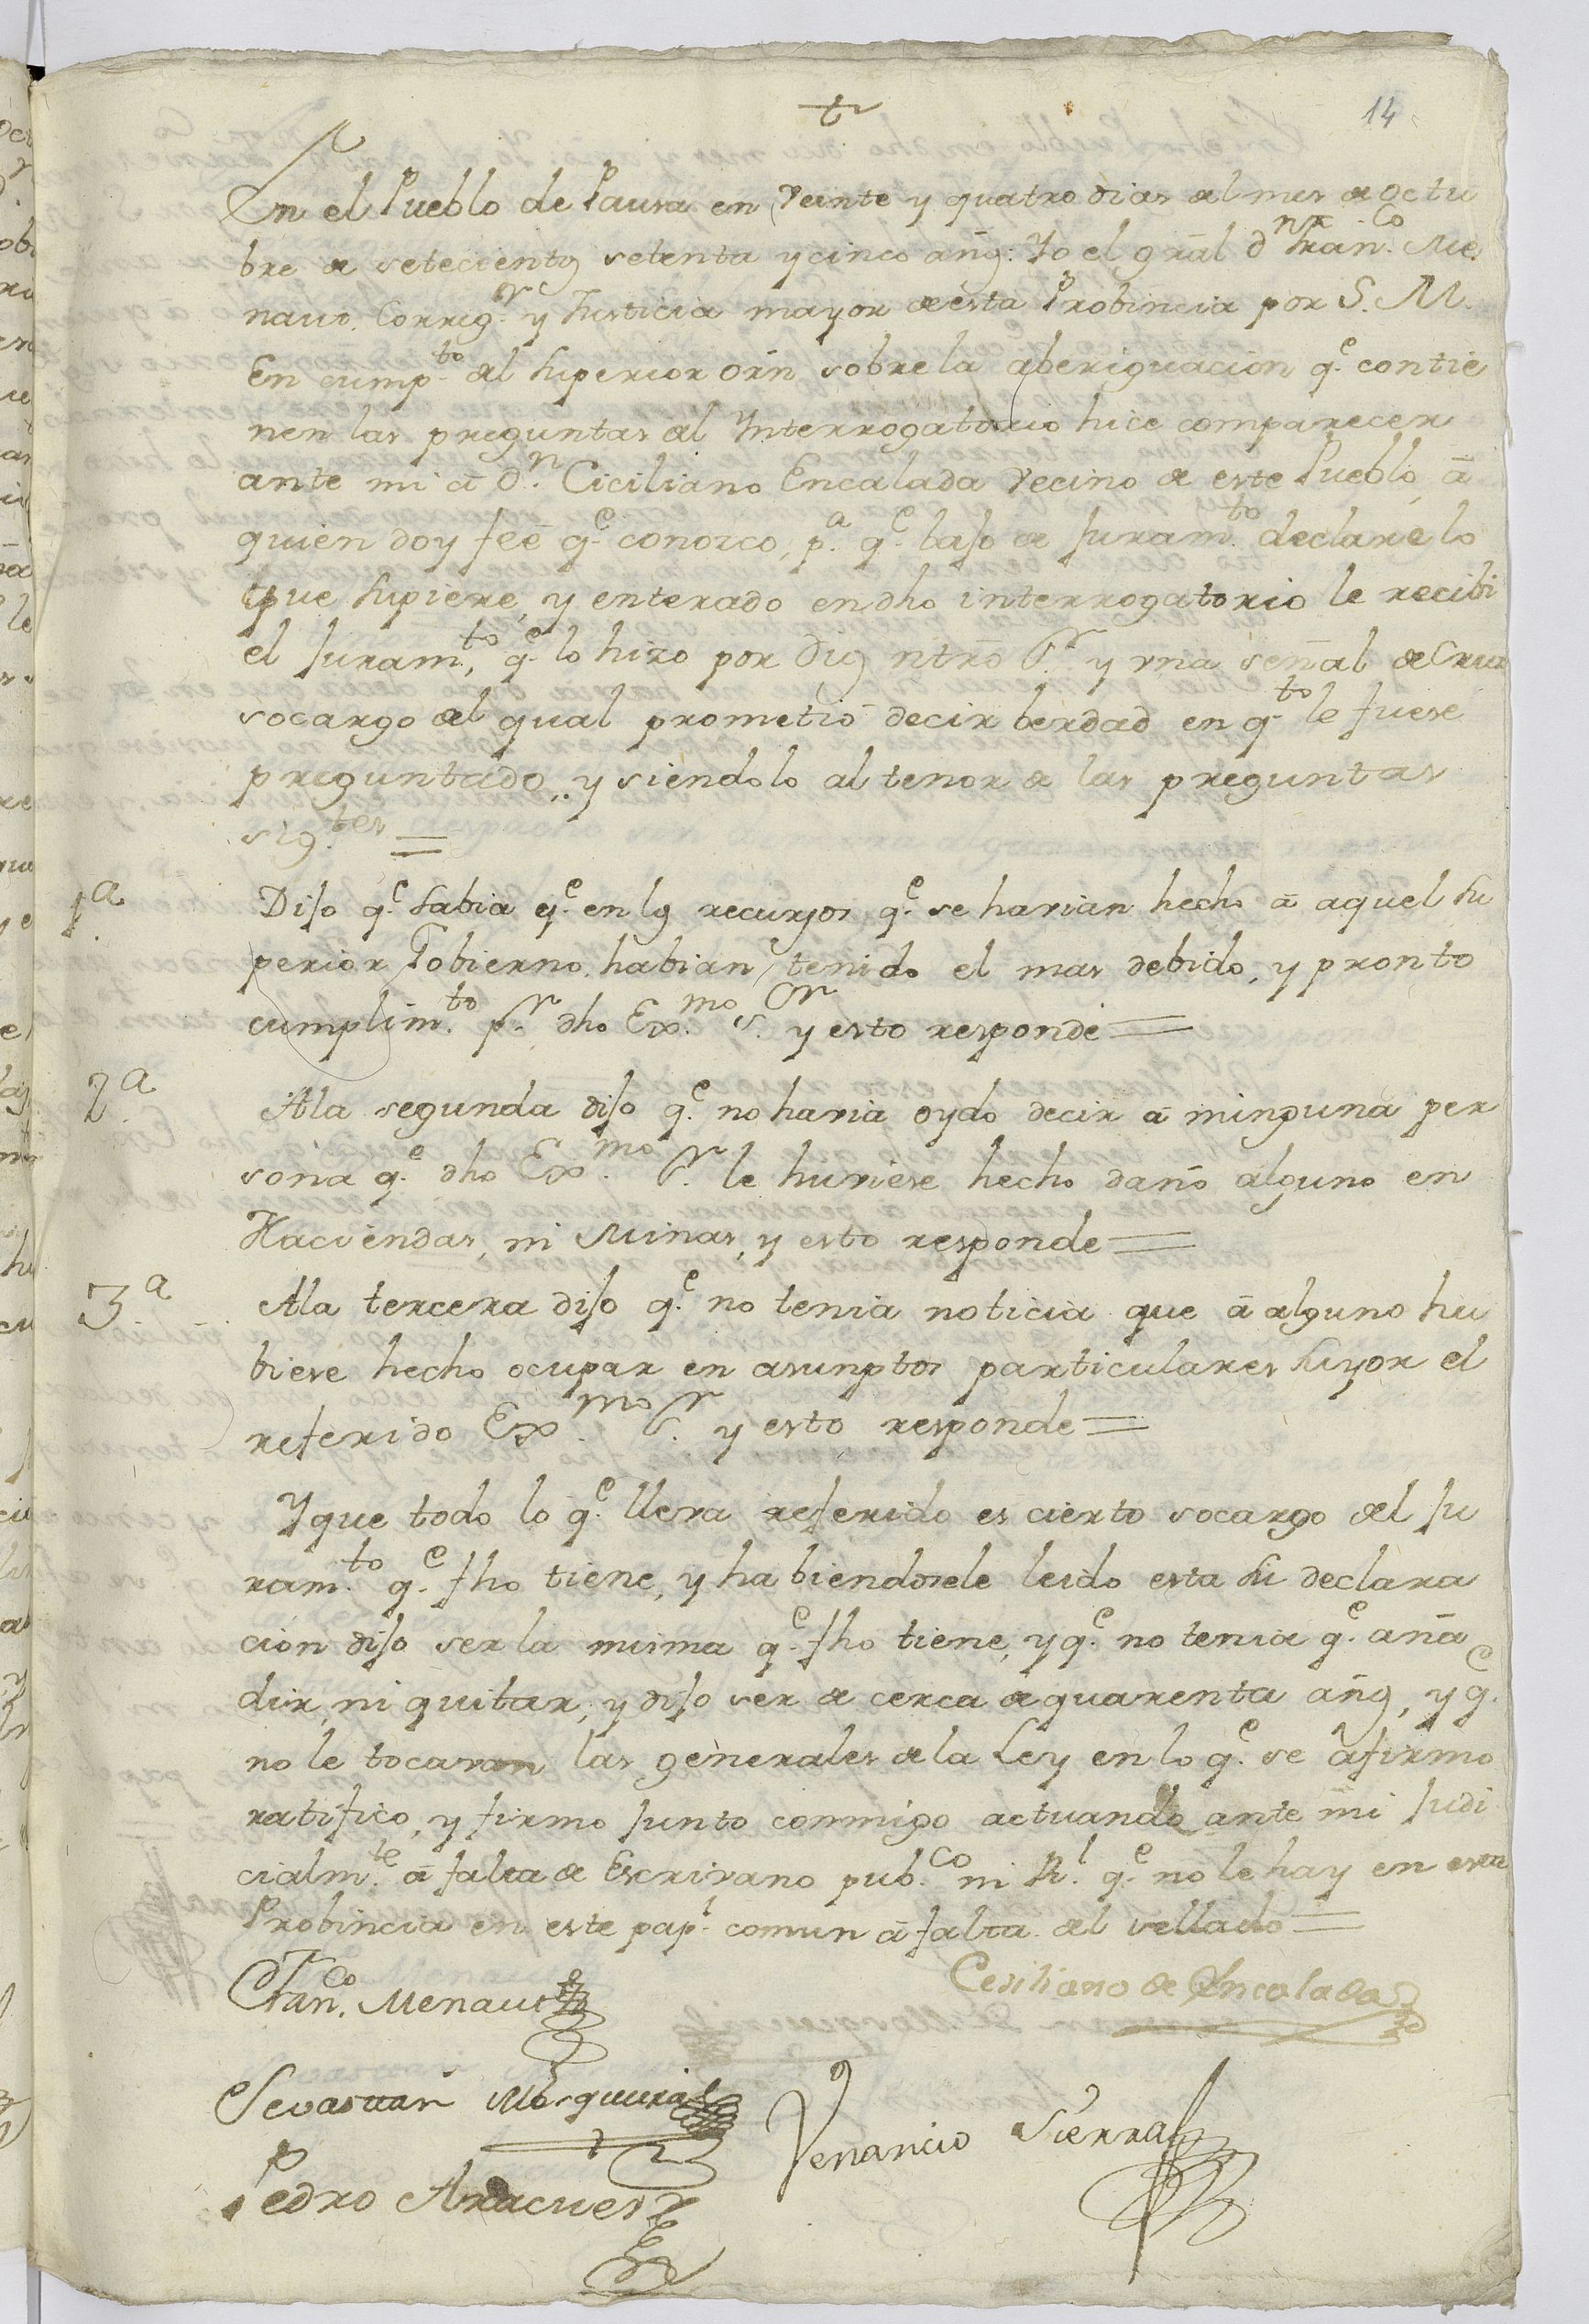 14
En el Pueblo de Pausa en Veinte y quatro dias del mes de octu
bre de setecientos setenta y cinco añs. Yo el gral dn Fran.co Me
naut. Corregr. y Justicia mayor de esta Probincia por S. M.
En cump.to del superior orn sobre la aberiguacion q.e contie
nen las preguntas del Interrogatorio hice comparecer
ante mi a d.n Ciciliano Encalada Vecino de este Pueblo, á
quien doy feé q.e conozco, p.a q.e bajo de Juram.to declare lo
que supiere, y enterado en dho interrogatorio le recibi
el Juram.to, q.e lo hizo por Dios ntro S.r y vna señal de Cruz
socargo del qual prometió decir berdad en q.to le fuese
preguntado, y siendolo al tenor de las preguntas
sig.tes =
1.a Dijo q.e sabia q.e en los recursos q.e se havian hecho á aquel su
perior Gobierno, habian tenido el mas debido, y pronto
cumplim.to p.r dho Ex.mo S.r y esto responde =
2.a Ala segunda dijo q.e no havia oydo decir á ninguna per
sona q.e dho Ex.mo S.r le huviese hecho daño alguno en
Haciendas, ni Minas, y esto responde =
3.a Ala tercera dijo q.e no tenia noticia que á alguno hu
biese hecho ocupar en asumptos particulares suyos el
referido Ex.mo S.r y esto responde =
Y que todo lo q.e lleva referido es cierto socargo del Ju
ram.to q.e fho tiene, y habiendosele leido esta su declara
cion dijo ser la misma q.e fho tiene, y q.e no tenia q.e aña
dir, ni quitar, y dijo ser de cerca de quarenta añs, y q.e
no le tocavan las generales de la Ley en lo q.e se afirmo
ratifico, y firmo junto conmigo actuando ante mi Judi
cialm.te á falta de Escrivano pub.co ni Rl. q.e no le hay en esta
Probincia en este pap.l comun á falta del sellado =
Fran.co Menaut
Cesiliano de Encalada
Sevastian Mosqueira
Venancio Sierra
Pedro Aracues